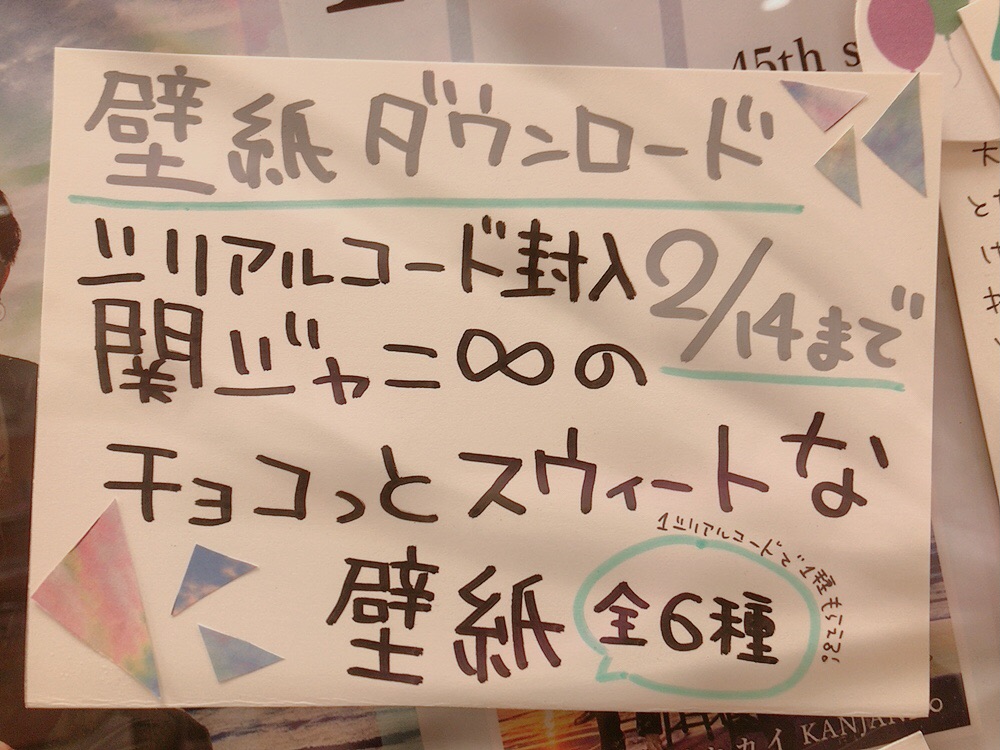 45th s
壁紙ダウンロード
シリアルコード封入 2/14まで
関ジャニ∞の
チョコっとスウィートな
壁紙 全6種
1シリアルコードで1種もらえる。
カイ KANJAN